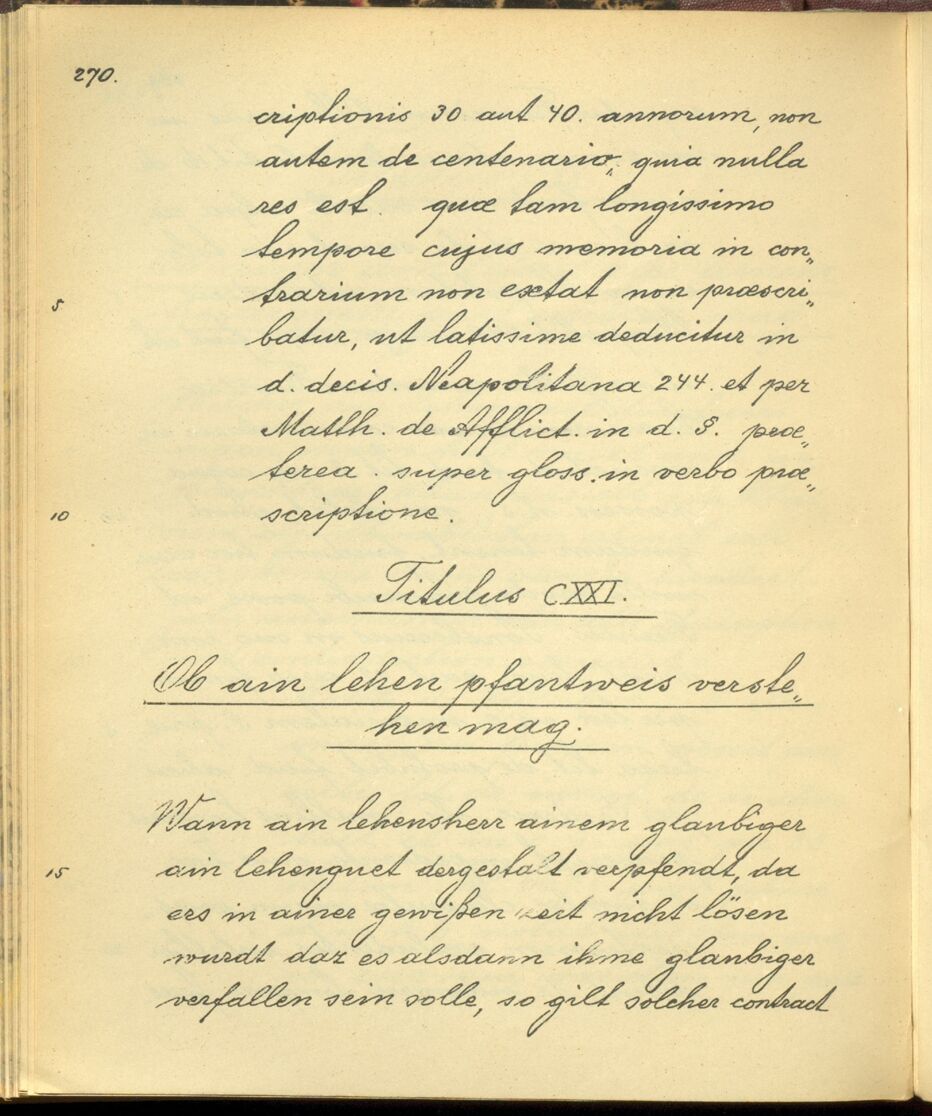 270.
criptionis 30 aut 40. annorum, non
autem de centenario„ quia nulla
res est. quæ tam longissimo
tempore cujus memoria in con„
5 trarium non extat non præscri„
batur, ut latissime deducitur in
d. decis. Neapolitana 244. et per
Matth. de Afflict. in d. §. præ„
terea. super gloss. in verbo præ„
10 scriptione.
Titulus CXXI.
Ob ain lehen pfantweis verste„
hen mag.
Wann ain lehensherr ainem glaubiger
15 ain lehenguet dergestalt verpfendt, da
ers in ainer gewißen zeit nicht lösen
wurdt daz es alsdann ihme glaubiger
verfallen sein solle, so gilt solcher contract